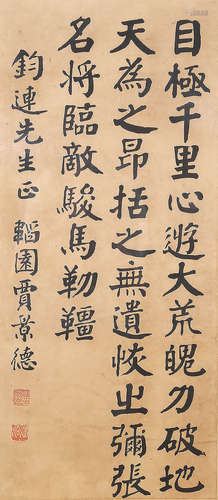 目極千里心遊大荒魄力破地
天為之昂括之無遺恢之彌張
名将臨敵駿馬勒韁
鈞連先生正 韜園賈景德